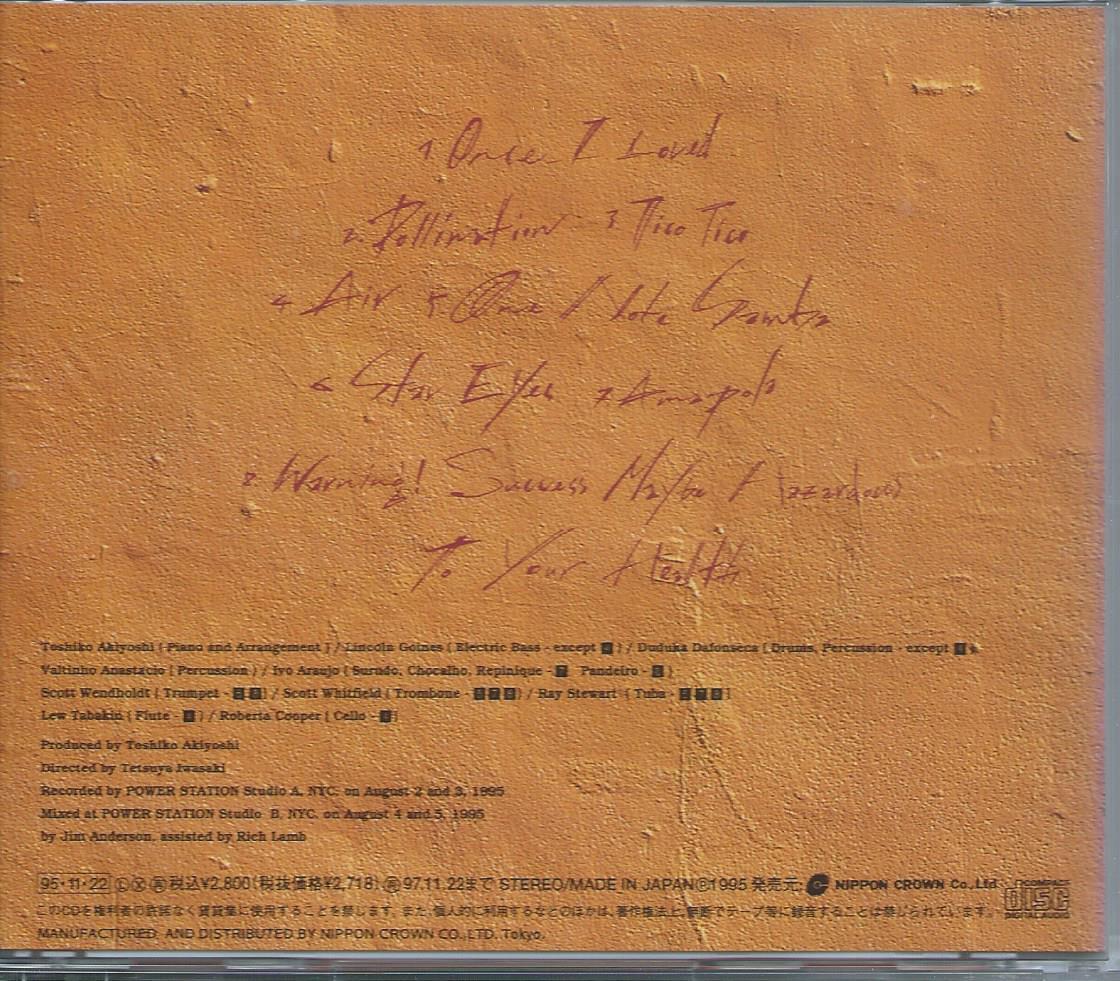 1 Once I Loved
2. Pollination 3 Tico Tico
4 Air 5 One Note Samba
6 Star Eyes 7 Amapola
8 Warning! Success Maybe Hazzardous
To Your Health
Toshiko Akiyoshi ( Piano and Arrangement ) / Lincoln Goines ( Electric Bass - except ) / Duduka Dafonseca ( Drums, Percussion - except
Valtinho Anastacio ( Percussion ) / Ivo Araujo ( Surado, Chocalho, Repinique - Pandeiro - )
Scott Wendholdt ( Trumpet - ) / Scott Whitfield ( Trombone - ) / Ray Stewart ( Tuba - )
Lew Tabakin ( Flute - ) / Roberta Cooper ( Cello - )
Produced by Toshiko Akiyoshi
Directed by Tetsuya Iwasaki
Recorded by POWER STATION Studio A, NYC. on August 2 and 3, 1995
Mixed at POWER STATION Studio B, NYC. on August 4 and 5, 1995
by Jim Anderson, assisted by Rich Lamb
95・11・22 Ⓛ Ⓧ ㊢税込¥2,800(税抜価格¥2,718) ㊢97.11.22まで STEREO/MADE IN JAPAN Ⓟ1995 発売元: NIPPON CROWN Co.,Ltd COMPACT disc DIGITAL AUDIO
このCDを権利者の許諾なく賃貸業に使用することを禁じます。また、個人的に利用するなどのほかは、著作権法上、無断でテープ等に録音することは禁じられています。
MANUFACTURED AND DISTRIBUTED BY NIPPON CROWN CO.,LTD. Tokyo.